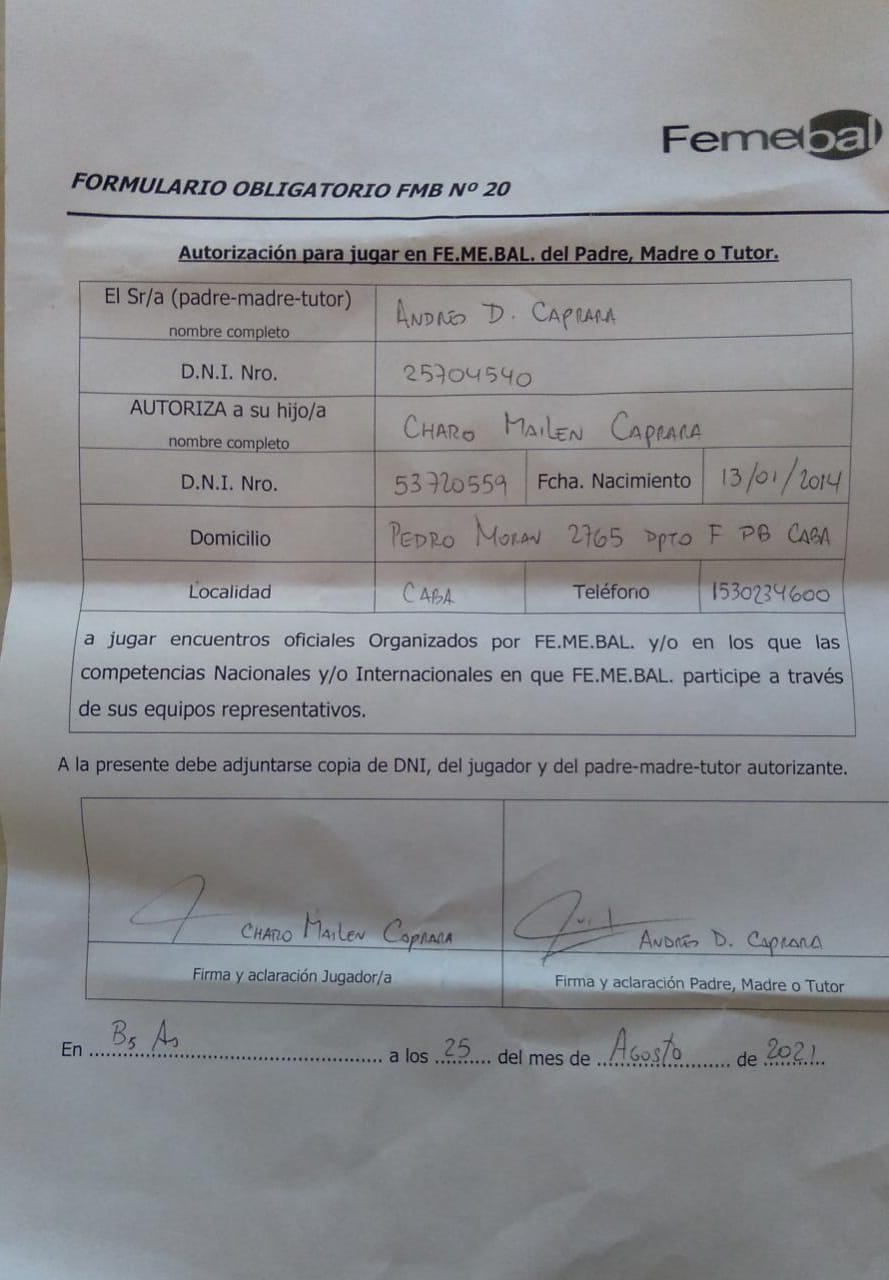 Femebal
FORMULARIO OBLIGATORIO FMB Nº 20
Autorización para jugar en FE.ME.BAL. del Padre, Madre o Tutor.
El Sr/a (padre-madre-tutor)
nombre completo
ANDRÉS D. CAPRARA
D.N.I. Nro.
25704540
AUTORIZA a su hijo/a
nombre completo
CHARO MAILEN CAPRARA
D.N.I. Nro. 53720559 Fcha. Nacimiento 13/01/2014
Domicilio PEDRO MORAN 2765 DPTO F PB CABA
Localidad CABA Teléfono 1530234600
a jugar encuentros oficiales Organizados por FE.ME.BAL. y/o en los que las
competencias Nacionales y/o Internacionales en que FE.ME.BAL. participe a través
de sus equipos representativos.
A la presente debe adjuntarse copia de DNI, del jugador y del padre-madre-tutor autorizante.
CHARO MAILEN CAPRARA
ANDRÉS D. CAPRARA
Firma y aclaración Jugador/a
Firma y aclaración Padre, Madre o Tutor
En Bs As a los 25 del mes de Agosto de 2021